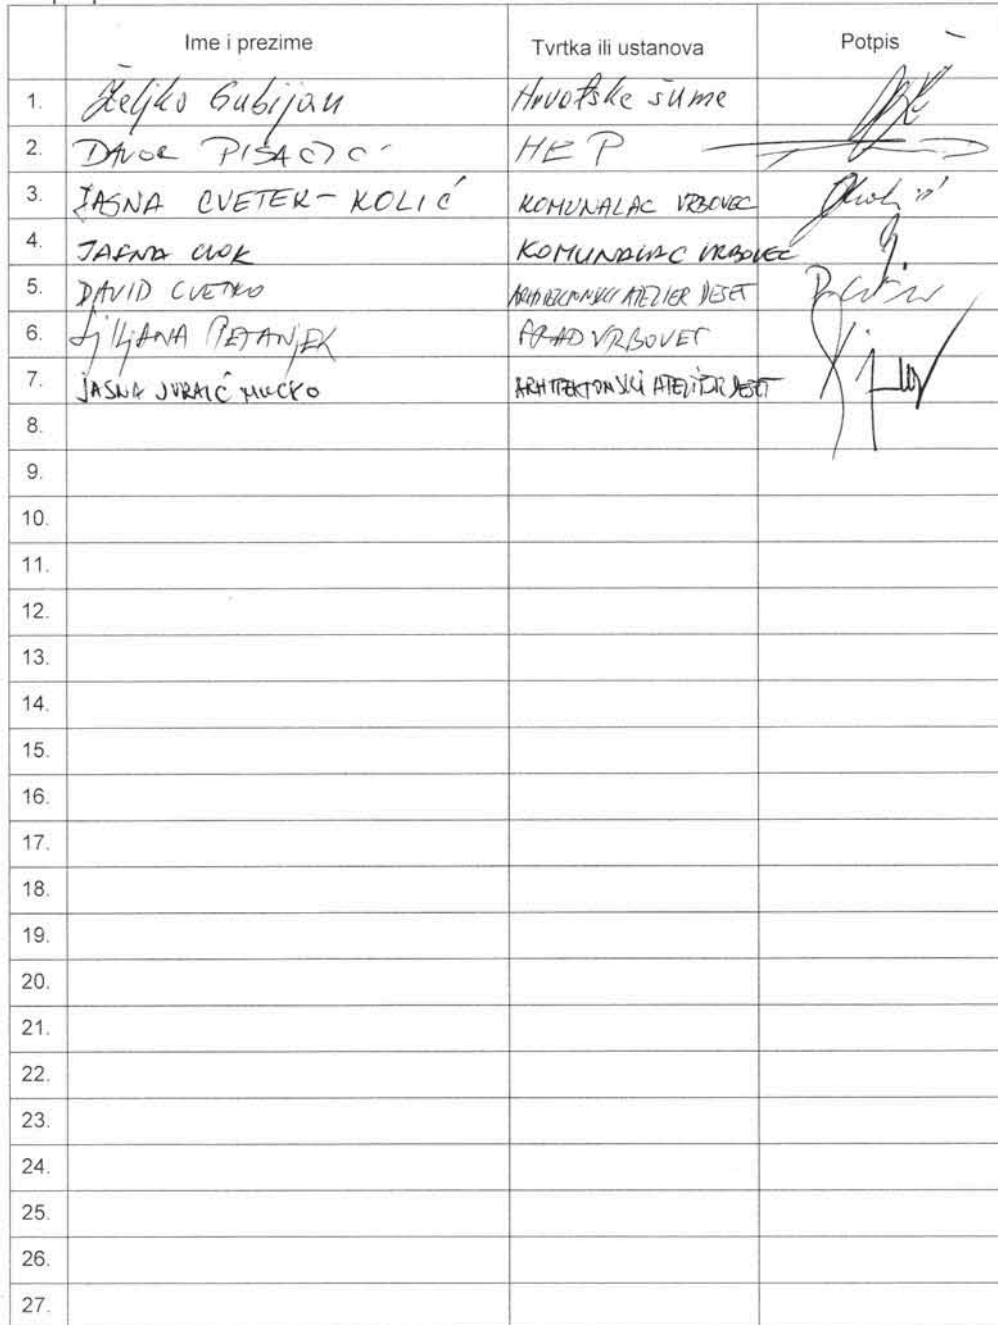 Ime i prezime Tvrtka ili ustanova Potpis
1. Željko Gubijan Hrvatske šume
2. DAVOR PISAČIĆ HEP
3. JASNA CVETEK-KOLIĆ KOMUNALAC VRBOVEC
4. JASNA KOMUNALAC VRBOVEC
5. DAVID CVETKO ARHITEKTONSKI ATELIER DESET
6. LJILJANA PETANJEK GRAD VRBOVEC
7. JASNA JURAIĆ MUCKO ARHITEKTONSKI ATELIER DESET
8.
9.
10.
11.
12.
13.
14.
15.
16.
17.
18.
19.
20.
21.
22.
23.
24.
25.
26.
27.